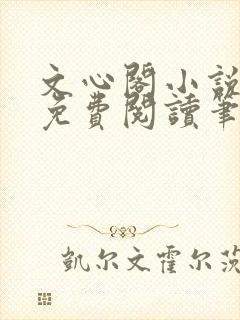 文心閣小說
免費閱讀筆
凱尔文霍尔茨